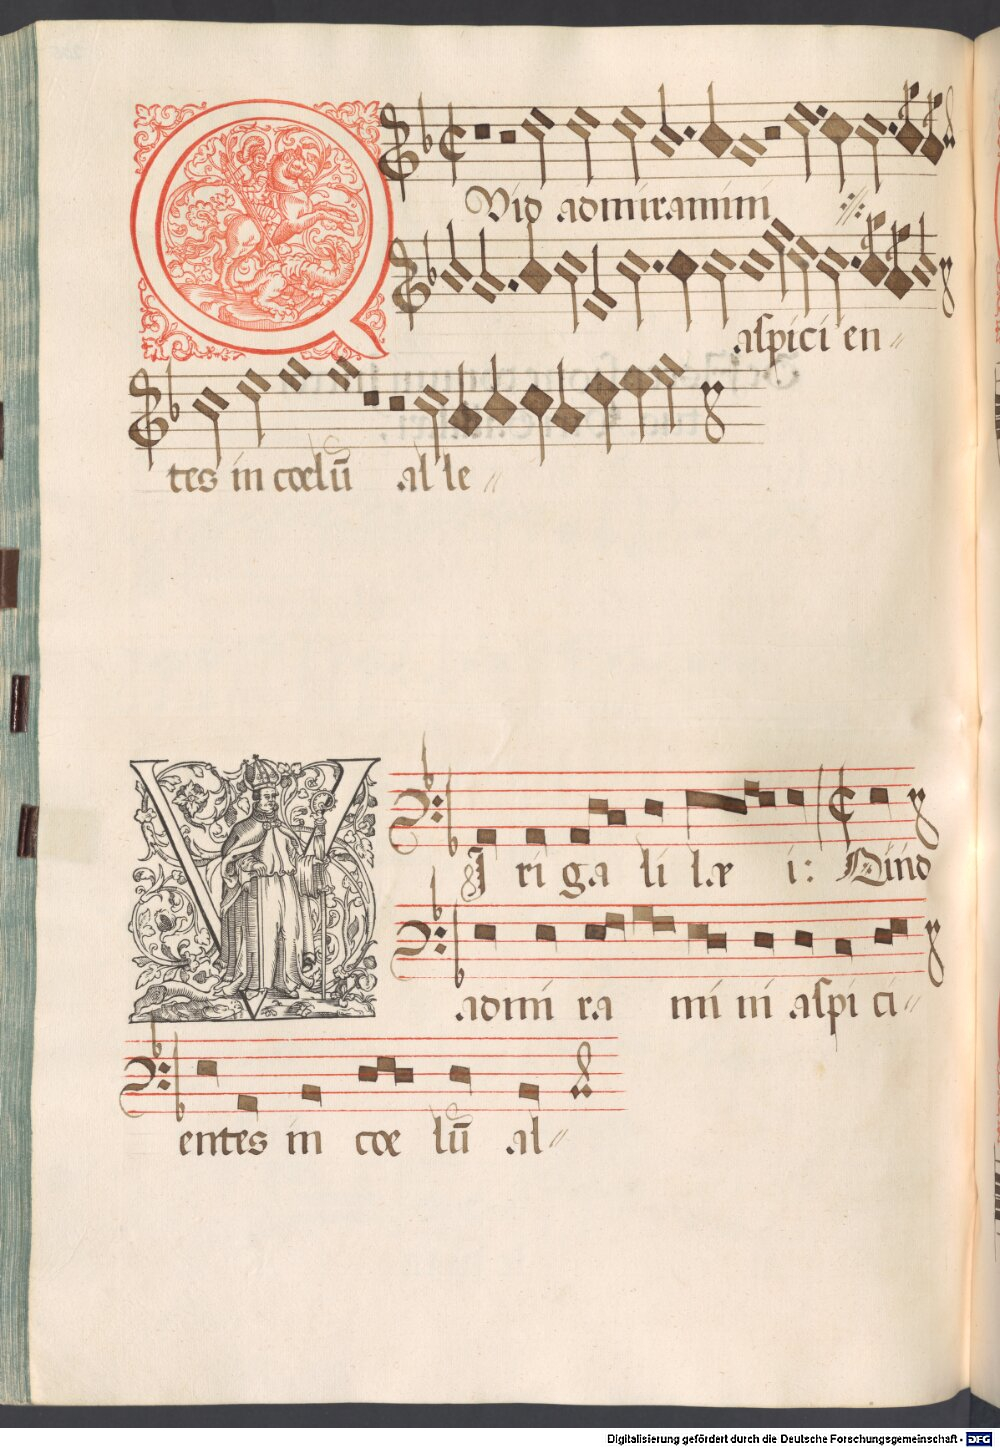 QVid admiramini ://:
aspici en //
tes in cœlū al le //
VJ ri ga li læ i: Quid
admi ra mi ni aspi ci //
entes in cœ lū al //
Digitalisierung gefördert durch die Deutsche Forschungsgemeinschaft - DFG